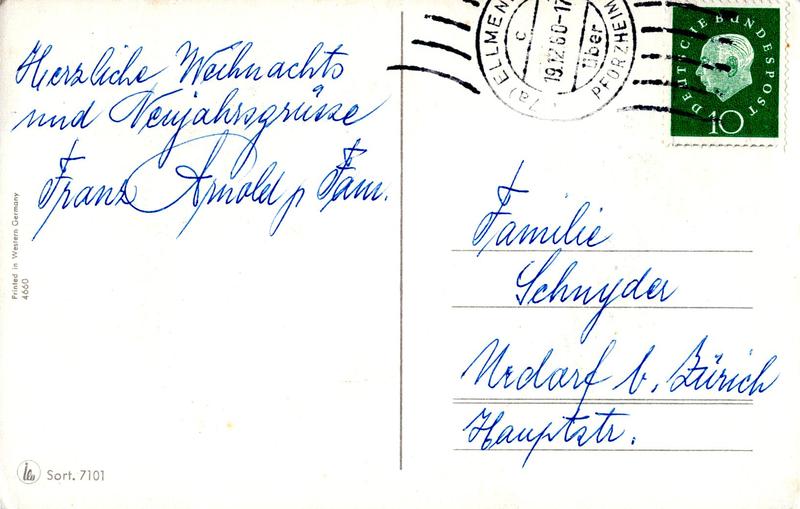 Herzliche Weihnachts
und Neujahrsgrüsse
Franz Arnold u Fam.
Printed in Western Germany
4660
Sort. 7101
(17a) ELLMEN
c
19.12.60-17
über
PFORZHEIM
DEUTSCHE BUNDESPOST
10
Familie
Schnyder
Urdorf b. Zürich
Hauptstr.